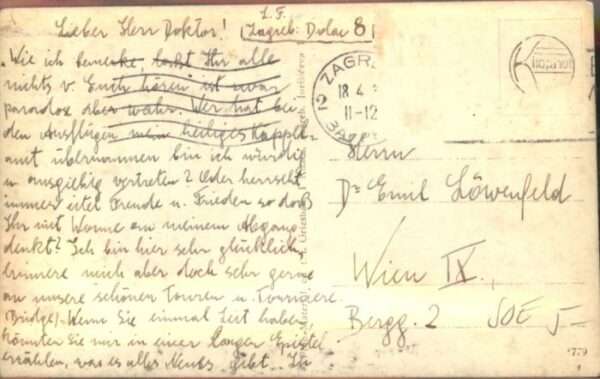 L. F.
Lieber Herr Doktor! (Zagreb: Dolac 8
Wie ich bemerke, laßt Ihr alle
nichts v. Euch hören ist zwar
paradox aber wahr. Wer hat bei
den Ausflügen mein heiliges Kappel-
amt übernommen bin ich würdig
u. ausgiebig vertreten? Oder herrscht
immer eitel Freude u. Frieden so daß
Ihr mit Wonne an meinem Abgang
denkt? Ich bin hier sehr glücklich,
erinnere mich aber doch sehr gerne
an unsere schönen Touren u. Tourniere.
(Bridge). Wenn Sie einmal Zeit haben,
könnten Sie mir in einer langen Epistel
erzählen, was es alles Neues gibt. In
ZAGR
18 4
11-12
2
Herrn
Dr Emil Löwenfeld
Wien IX.,
Bergg. 2